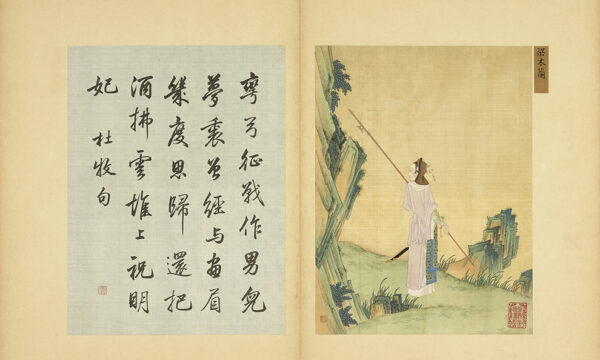 梁木蘭
彎弓征戰作男兒
夢裏曾經與畫眉
幾度思歸還把
酒拂雲堆上祝明
妃 杜牧句